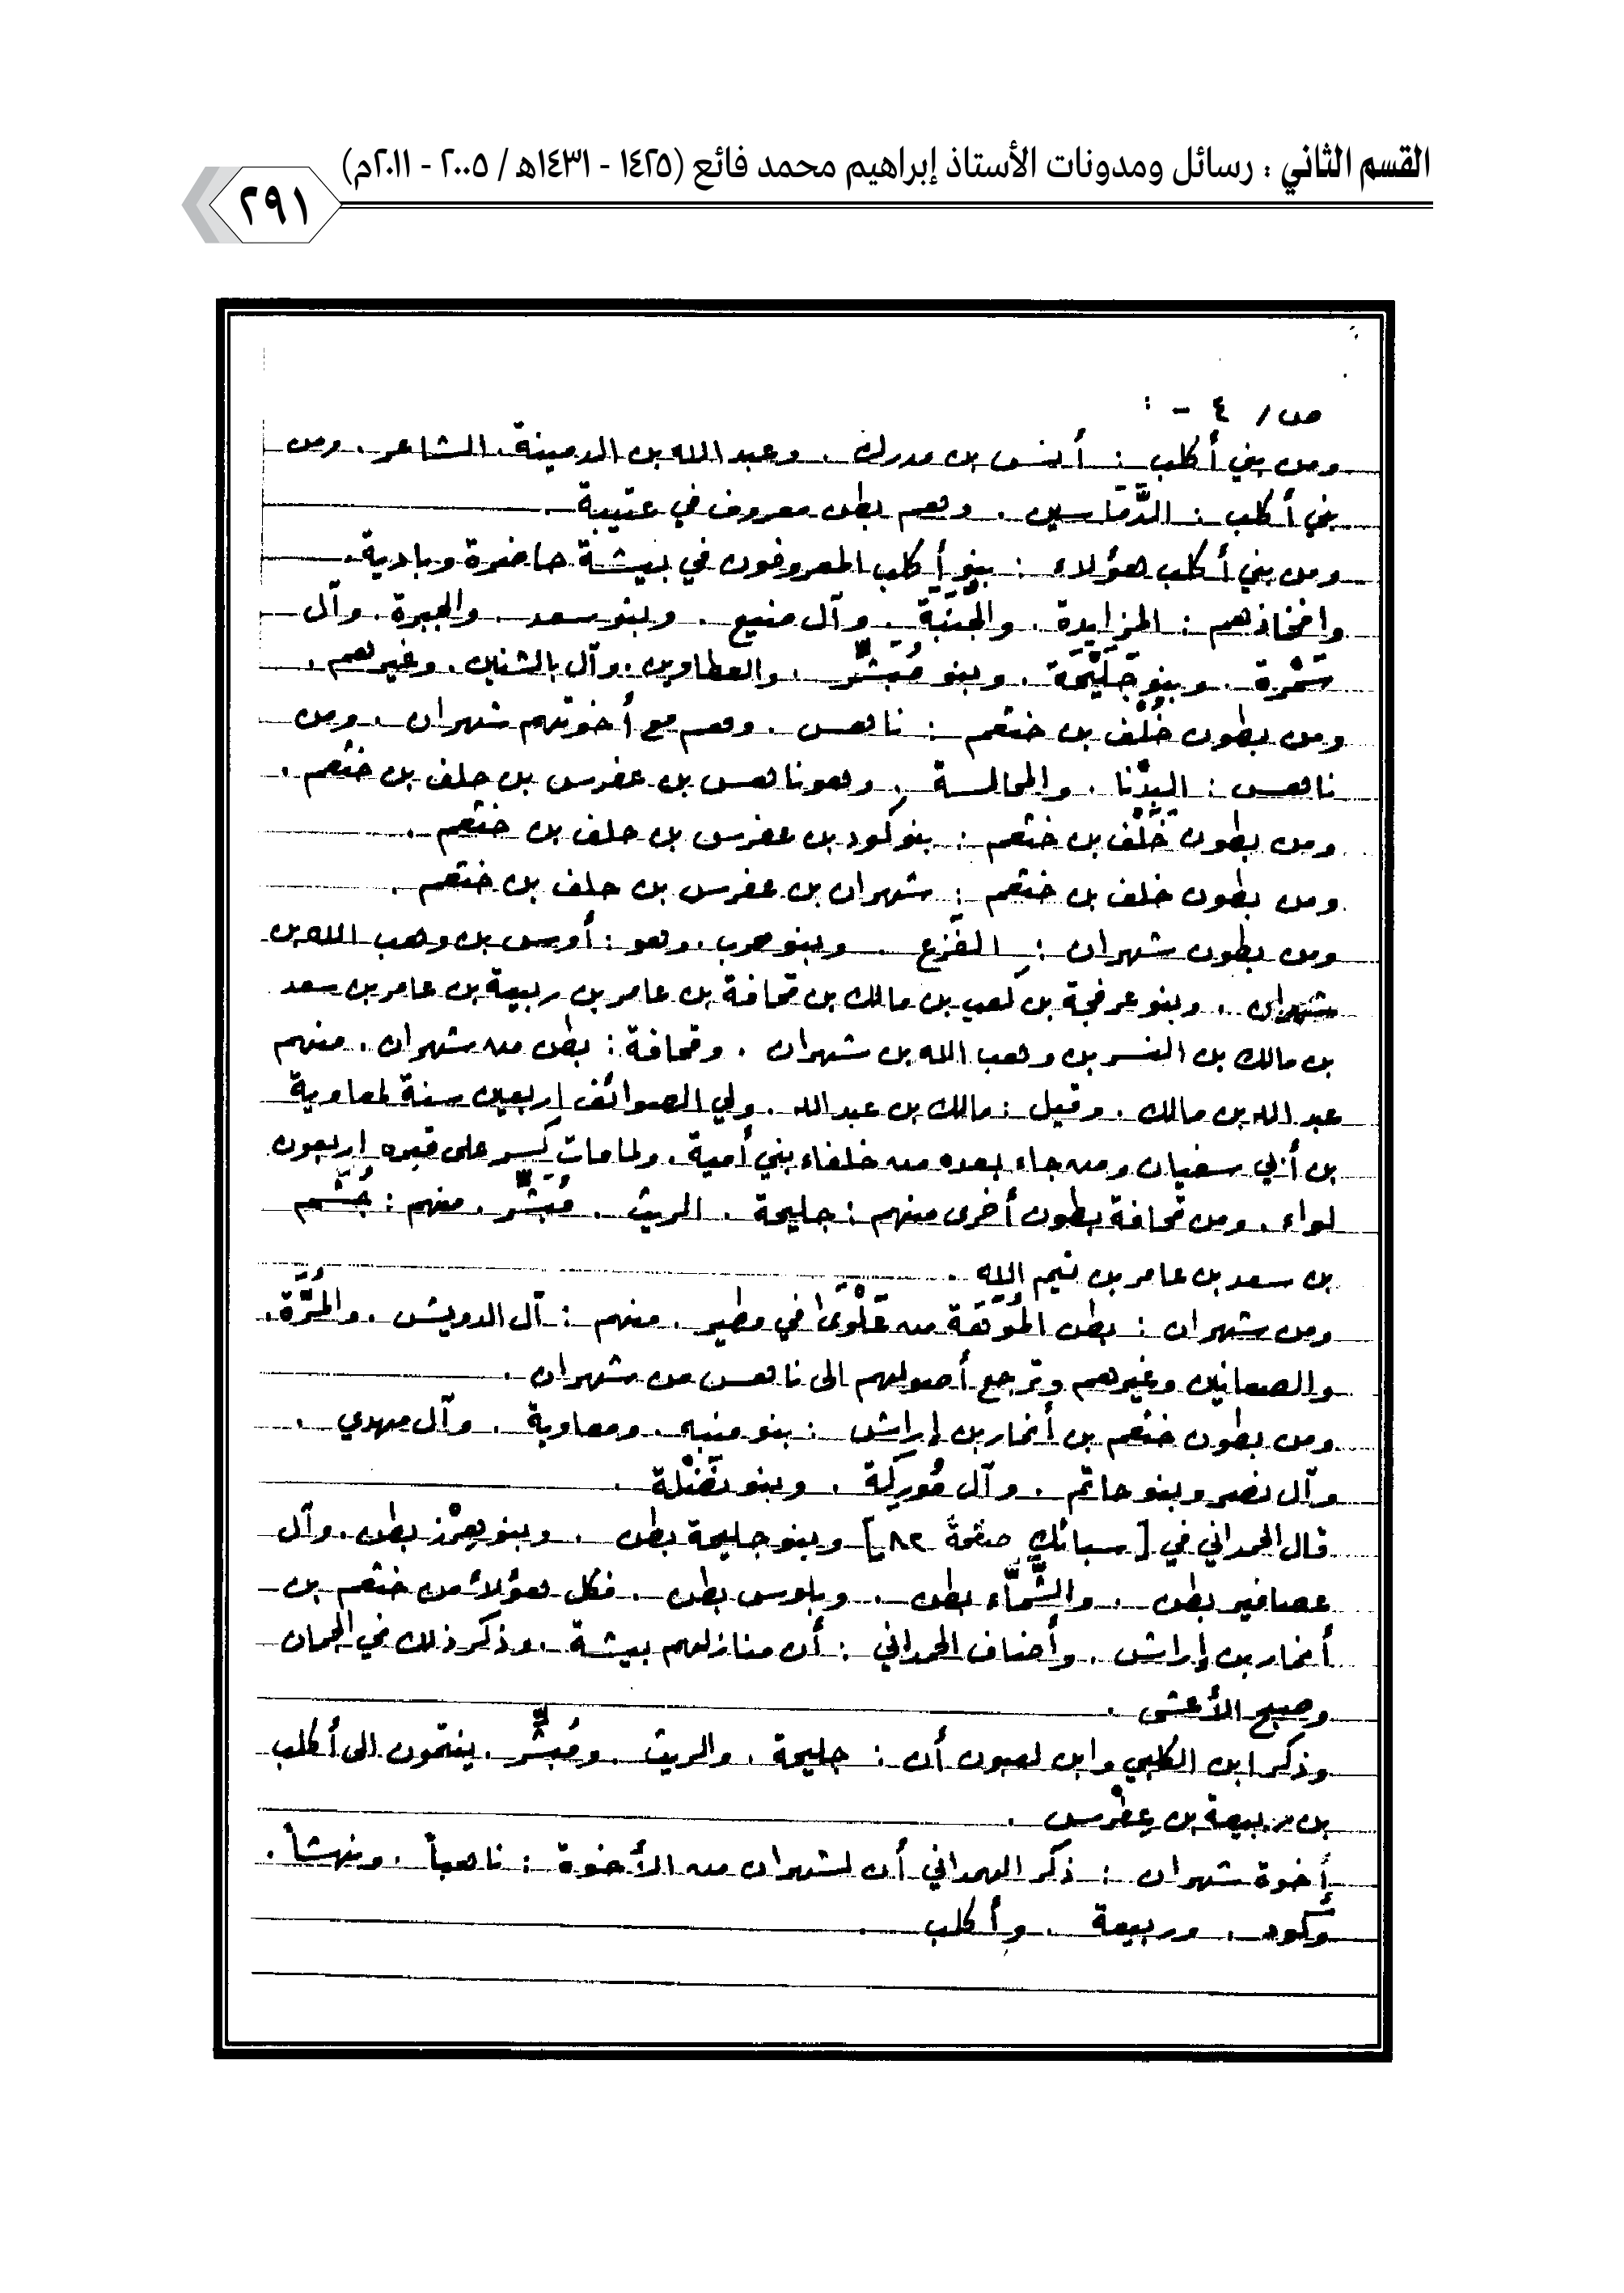 القسم الثاني : رسائل ومدونات الأستاذ إبراهيم محمد فائع (١٤٢٥ - ١٤٣١هـ / ٢٠٠٥ - ٢٠١١م)
٢٩١
ص / ٤ - :
ومن بني أكلب : أنس بن مدرك . وعبد الله بن الدمينة . الشاعر . ومن
بني أكلب : الدَّمَاسين . وهم بطن معروف في عتيبة .
ومن بني أكلب هؤلاء : بنو أكلب المعروفون في بيشة حاضرة وبادية .
وافخاذهم : المزايدة . والجَنَبَة . وآل منيع . وبنو سعد . والجبرة . وآل
سَمْرة . وبنو جَلَيْحَة . وبنو مُبَشِّر . والعطاوين . وآل بالشنين . وغيرهم .
ومن بطون خُلْف بن خثعم : ناهس . وهم مع أخوتهم شهران . ومن
ناهس : البِدْنا . والمحالسة . وهو ناهس بن عفرس بن حلف بن خثعم .
ومن بطون خَُلْف بن خثعم : بنو كود بن عفرس بن حلف بن خثعم .
ومن بطون خلف بن خثعم : شهران بن عفرس بن حلف بن خثعم .
ومن بطون شهران : الفَزِع . وبنو حرب . وهو : أوس بن وهب الله بن
شهران . وبنو عرفجة بن كعب بن مالك بن قحافة بن عامر بن ربيعة بن عامر بن سعد
بن مالك بن النسر بن وهب الله بن شهران . وقحافة : بطن من شهران . منهم
عبد الله بن مالك . وقيل : مالك بن عبد الله . ولي الصوائف اربعين سنة لمعاوية
بن أبي سفيان ومن جاء بعده من خلفاء بني أمية . ولما مات كُسِر على قبره اربعون
لواء . ومن قحافة بطون أخرى منهم : جليحة . الريث . مُبَشِّر . منهم : جُشَم
بن سعد بن عامر بن تيم الله .
ومن شهران : بطن المُوَهَة من عَلْوَى في مطير . منهم : آل الدويش . والمُرَّة .
والصعانين وغيرهم وترجع أصولهم الى ناهس من شهران .
ومن بطون خثعم بن أنمار بن إراش : بنو منبه . ومعاوية . وآل مهدي .
وآل نصر وبنو حاتم . وآل مُوركَة . وبنو نَضْلة .
قال الحمداني في [ سبائك صفحة ٨٢ ] وبنو جليحة بطن . وبنو هِزْر بطن . وآل
عصافير بطن . والشَّمَّاء بطن . وبلوس بطن . فكل هؤلاء من خثعم بن
أنمار بن إراش . وأضاف الحمداني : أن منازلهم بيشة . وذكر ذلك في الجمان
وصبح الأعشى .
وذكر ابن الكلبي وابن لعبون أن : جليحة . والريث . ومُبَشِّر . ينتمون الى أكلب
بن ربيعة بن عِفْرس .
إخوة شهران : ذكر الهمداني أن لشهران من الأخوة : ناهباً . ونهشاً .
وكود . وربيعة . وأكلب .